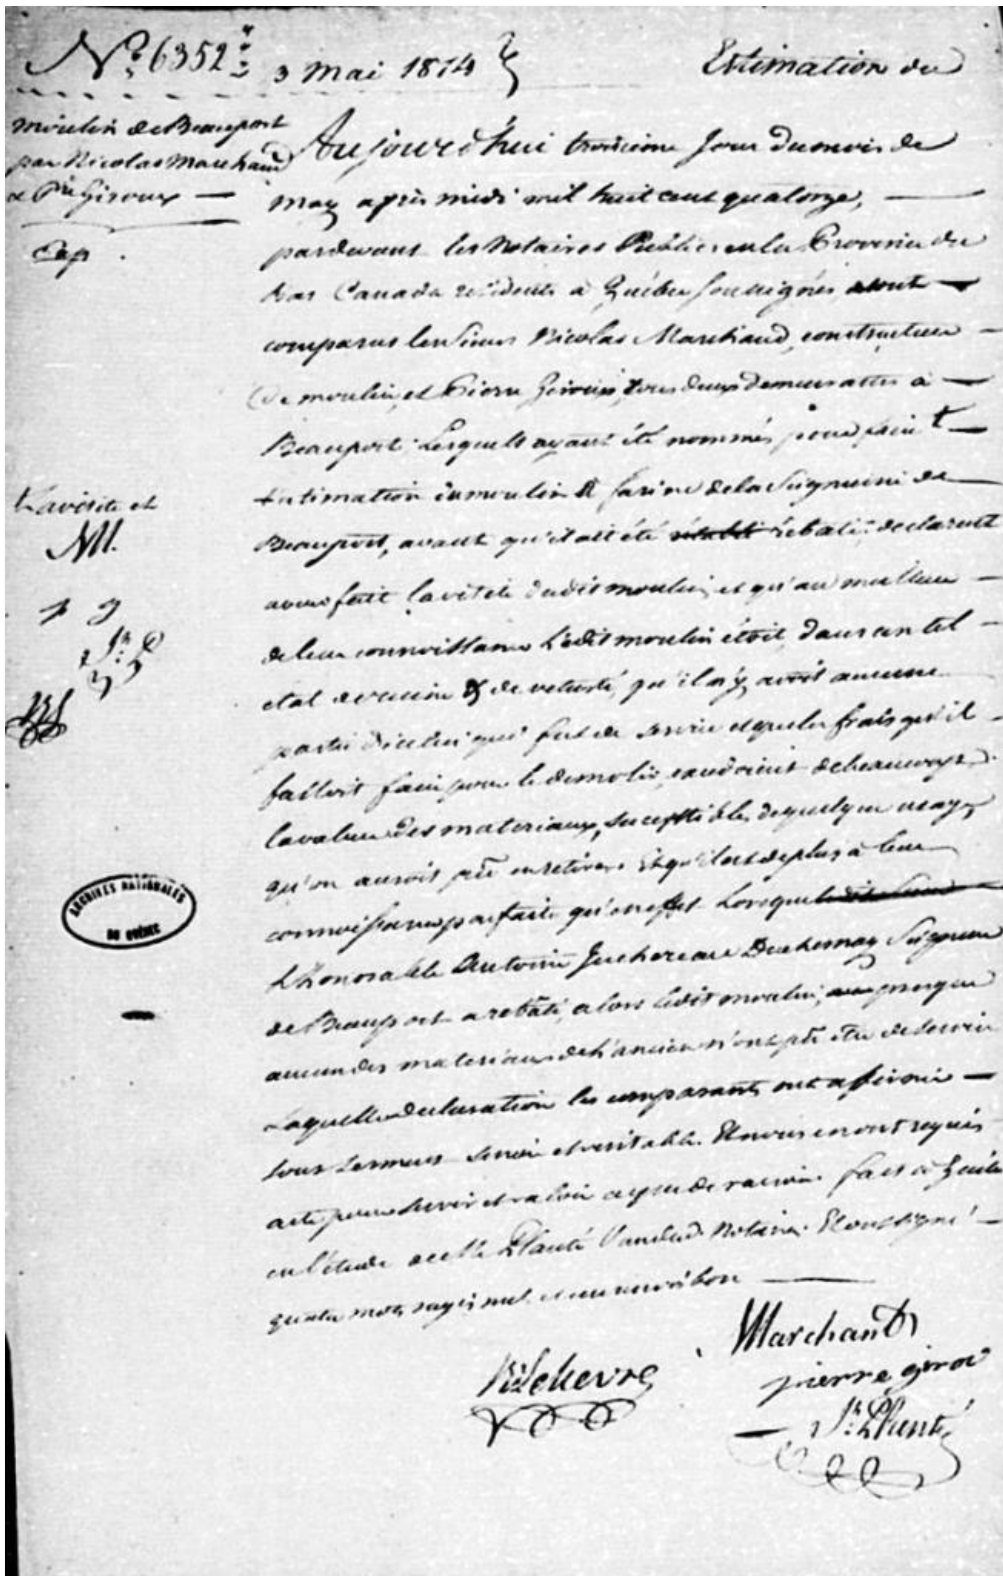 No. 6352
3 Mai 1814
Estimation du
moulin de Beauport
par Nicolas Marchand
& Prre Giroux
Exp
Aujourd'hui troisieme Jour du mois de
may après midi mil huit cent quatorze,
pardevant les Notaires Publics en la Province du
bas Canada résidents à Québec soussignés
comparus les Sieurs Nicolas Marchand, constructeur
de moulin, et Pierre Giroux, tous deux demeurants à
Beauport. Lesquels ayant été nommés pour faire
la visite et
M.
p g
J.P
estimation du moulin à farine de la Seigneurie de
Beauport, avant qu'il ait été rebati, declarent
avoir fait la visite dudit moulin, et qu'au meilleur
de leur connoissance Ledit moulin étoit dans un tel
etat de ruine & de vetusté, qu'il n'y avoit aucune
partie d'icelui qui fut de service et que les frais qu'il
falloit faire pour le demolir, de beaucoup
la valeur des materiaux, susceptibles de quelque usage
qu'on auroit pû en retirer. Et qu'il est de plus à leur
connoissance parfaite qu'en effet Lorsque
L'honorable Antoine Juchereau Duchesnay Seigneur
de Beauport a rebâti, alors ledit moulin, presque
aucun des materiaux de l'ancien n'ont pû être de service
Laquelle declaration les comparants ont affirmé
sous serment sincere et veritable. Et nous en ont requis
acte pour servir et valoir ce que de raison. fait à Québec
en l'étude de Me Planté l'un des Notaires. Et ont signé
quatre mots rayés nuls et un renvoi bon
Marchand
pierre girou
R: Lelievre
Jh: Planté
ARCHIVES NATIONALES
DU QUÉBEC